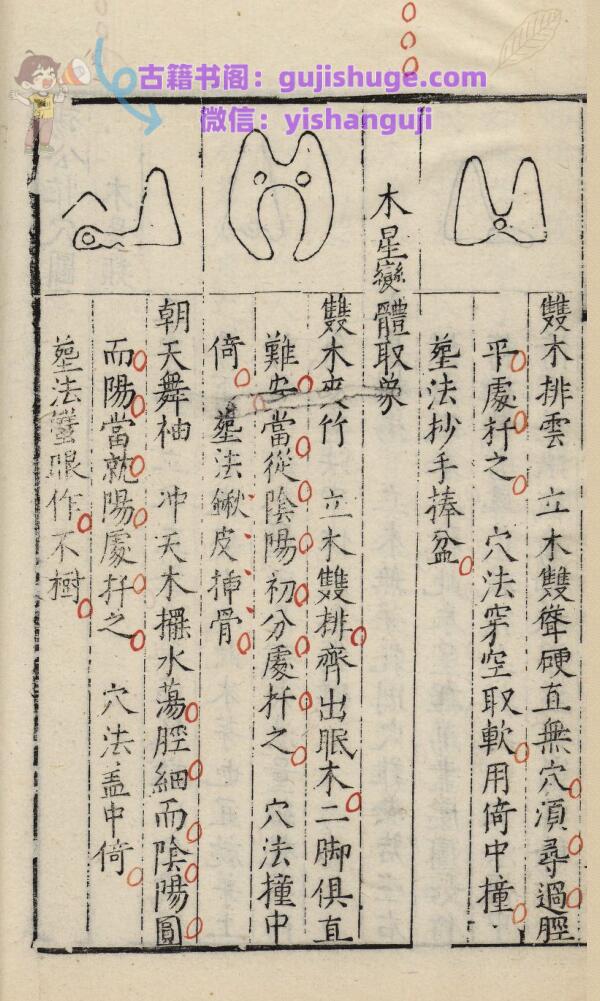 古籍书阁：gujishuge.com
微信：yishanguji
雙木排雲　立木雙聳硬直無穴湏尋過脛
平處扦之　穴法穿空取軟用倚中撞
塟法抄手捧盆
木星變體取象
雙木夾竹　立木雙排齊出眠木二脚俱直
難安當從陰陽初分處扦之　穴法撞中
倚　塟法鍬皮揷骨
朝天舞袖　冲天木擺水蕩脛細而陰陽圓
而陽當就陽處扦之　穴法盖中倚
塟法蠶眼作不樹